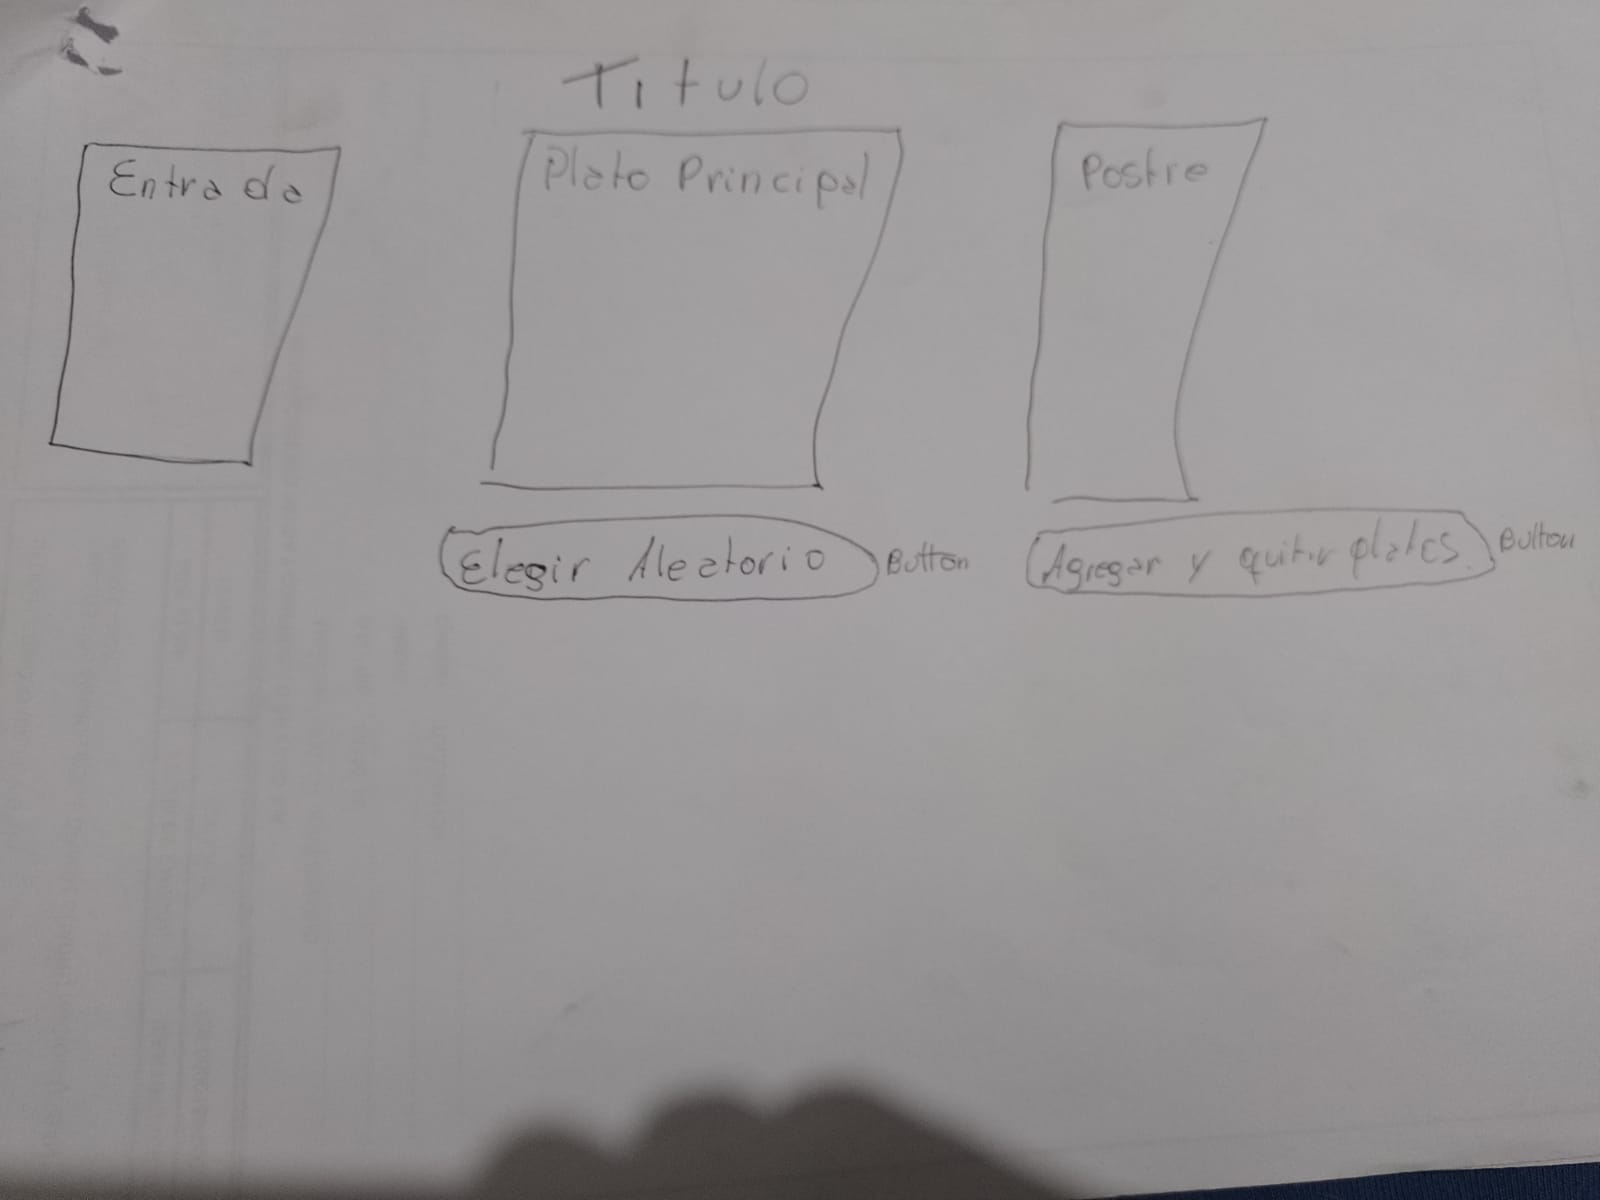 Titulo
Entrada
Plato Principal
Postre
Elegir Aleatorio
Button
Agregar y quitar platos
Button